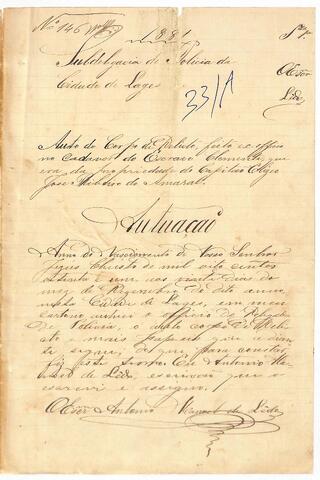 Nº 146
1881
Subdelegacia de Policia da
Cidade de Lages
O Escr
Lida
33/A
Auto de Corpo de Delicto, feito ex officio
no cadaver do Escravo Clemente, que
era da propriedade do Capitão Elizeo
José Ribeiro do Amaral.
Autuação
Anno do Nascimento de Nosso Senhor
Jezus Christo de mil oito centos
oitenta e um, aos vinte dias do
mez de Dezembro do dito anno,
nesta Cidade de Lages, em meu
cartorio autuei o officio do
de Policia, o auto corpo de delic
to e mais papeis que adian
te seguem, do que para constar
fiz este termo. Eu Antonio Ma
noel de Lida, escrivão que o
escrevi e assigno.
O Escr Antonio Manoel de Lida